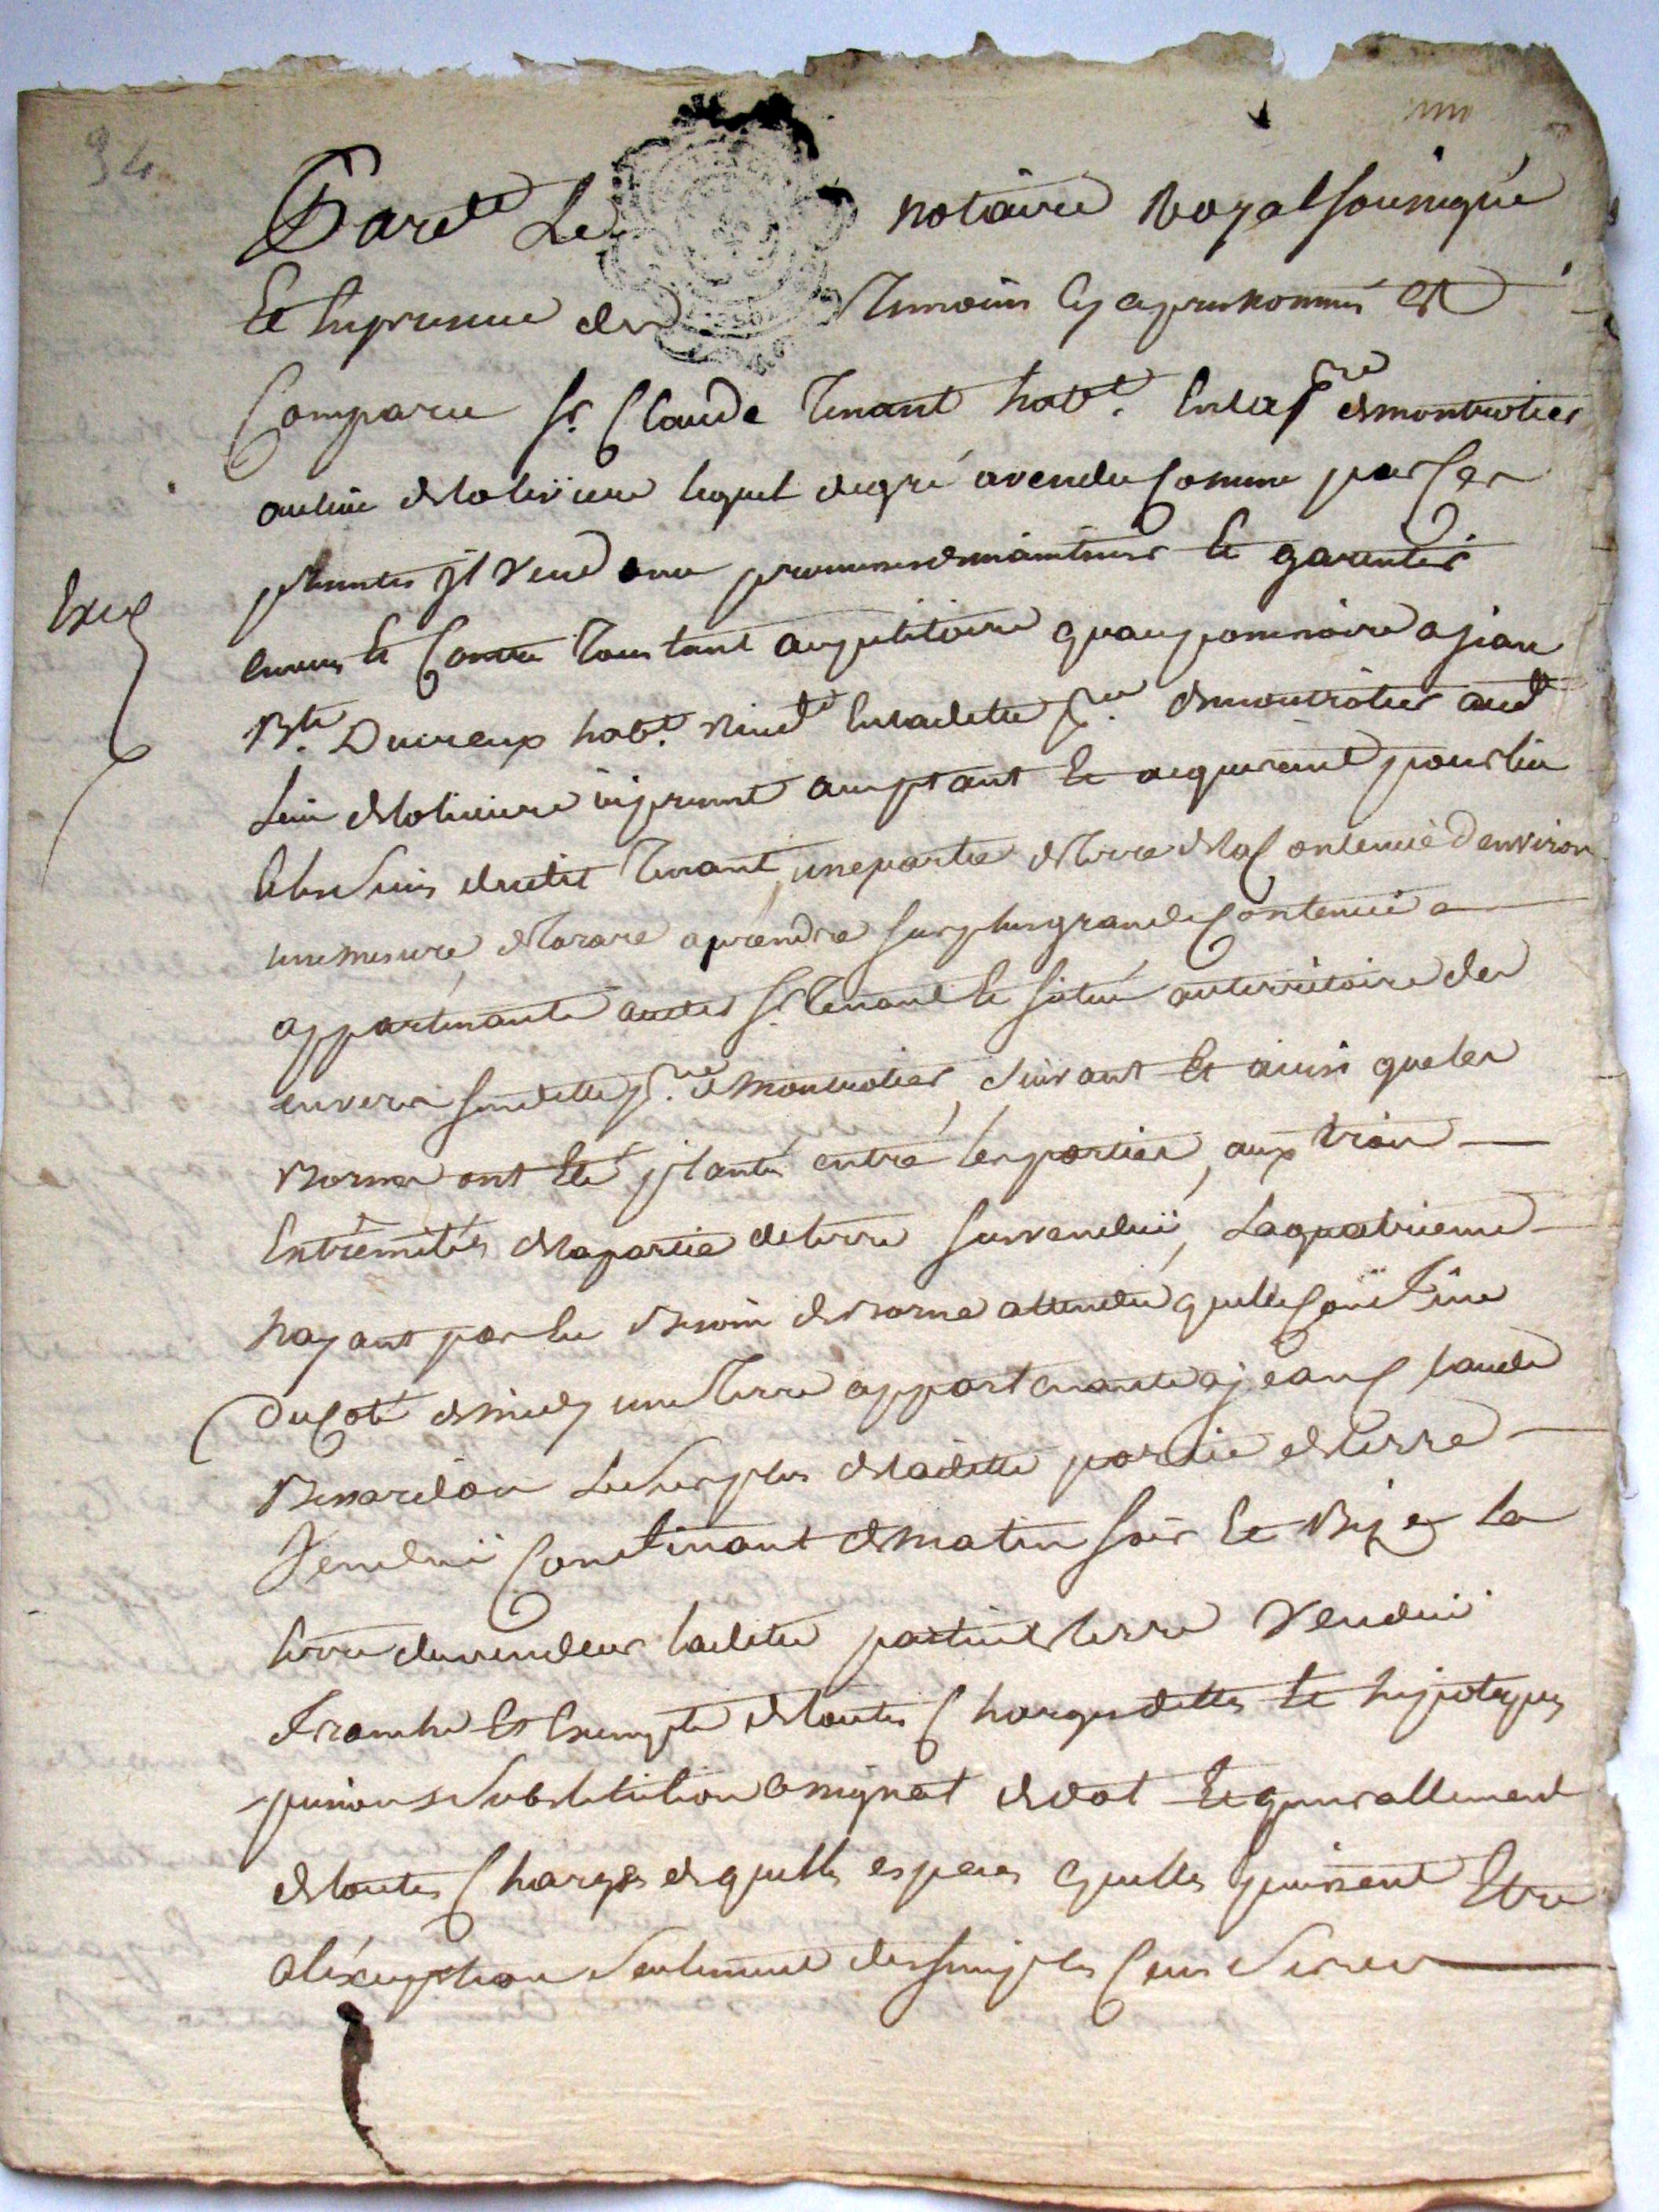 94
Pard.t Le notaire Royal sousigné
Et En presence des Temoins cy apres nommés Est
Comparu Sr. Claude Tenant hab.t En la p.sse de montrotier
au lieu de lolivière lequel de gré a vendu Comme par Ces
presentes il vend avec promesse de maintenir Et garentir
Envers Et Contre Tous tant au petitoire qu'au possessoire a jean
B.te Ducreux hab.t En laditte p.sse de montrotier aud.t
Lieu de lolivière icy present acceptant Et acquerant pour lui
Et les siens dudit Tenant, une partie de terre de la Contenue d'environ
une mesure de Tarare a prendre sur plus grande Contenue
appartenante audit Sr. Tenant Et située au territoire des
envers susditte p.sse de Montrotier, suivant Et ainsi que les
Bornes ont Eté plantés entre les parties, aux trois
Extrémités de la partie de terre susvendüe, La quatrieme
nayant pas Eu Besoin de Borne attendu quelle Confine
Du Coté de midy une Terre appartenante a jean Claude
Le surplus de laditte partie de terre
Vendüe Confinant de matin soir Et Bize la
terre du vendeur laditte partie de terre Vendüe
Franche Et Exempte de toutes Charges dettes Et hipoteques
pension substitution assignat de dot Et generallement
de toutes Charges de quelles especes quelles puissent Etre
a l'éxception seulement des simples Cens Servis